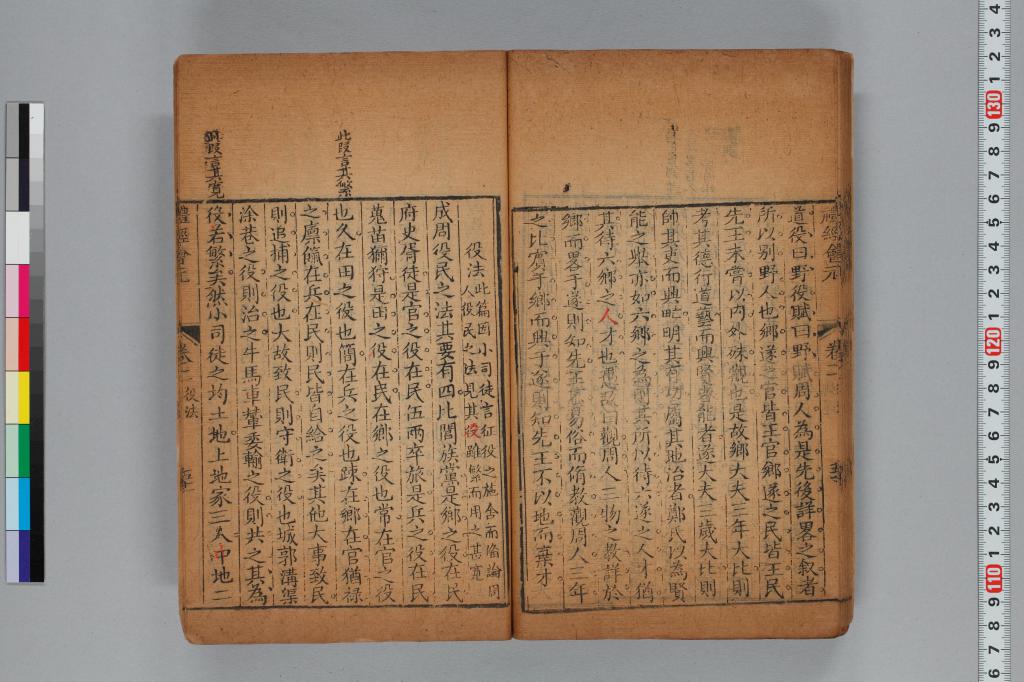 禮經會元
卷二
道役曰野役賦曰野賦周人為是先後詳畧之叙者
所以別野人也鄉遂之官皆王官鄉遂之民皆王民
先王未嘗以內外殊觀也是故鄉大夫三年大比則
考其德行道藝而興賢者能者遂大夫三歲大比則
帥其吏而興甿明其有功屬其地治者鄭氏以為賢
能之興亦如六鄉之為則其所以待六遂之人才猶
其待六鄉之人才也 觀周人三物之教詳於
鄉而畧于遂則知先王 易俗而脩教觀周人三年
之比賓于鄉而興于遂則知先王不以地而棄才
役法此篇因小司徒言征役之施舍而備論周
人役民之法見其役雖繁而用之甚寬
成周役民之法其要有四比閭族黨是鄉之役在民
府史胥徒是官之役在民伍兩卒旅是兵之役在民
蒐苗獮狩是田之役在民在鄉之役也常在官之役
此段言其繁
也久在田之役也簡在兵之役也疎在鄉在官猶祿
之廪餼在兵在民則民皆自給之矣其他大事致民
則追捕之役也大故致民則守衛之役也城郭溝渠
涂巷之役則治之牛馬車輦委輸之役則共之其為
段言其寬
役若繁矣然小司徒之均土地上地家三人中地二
禮經會元
卷二
役法